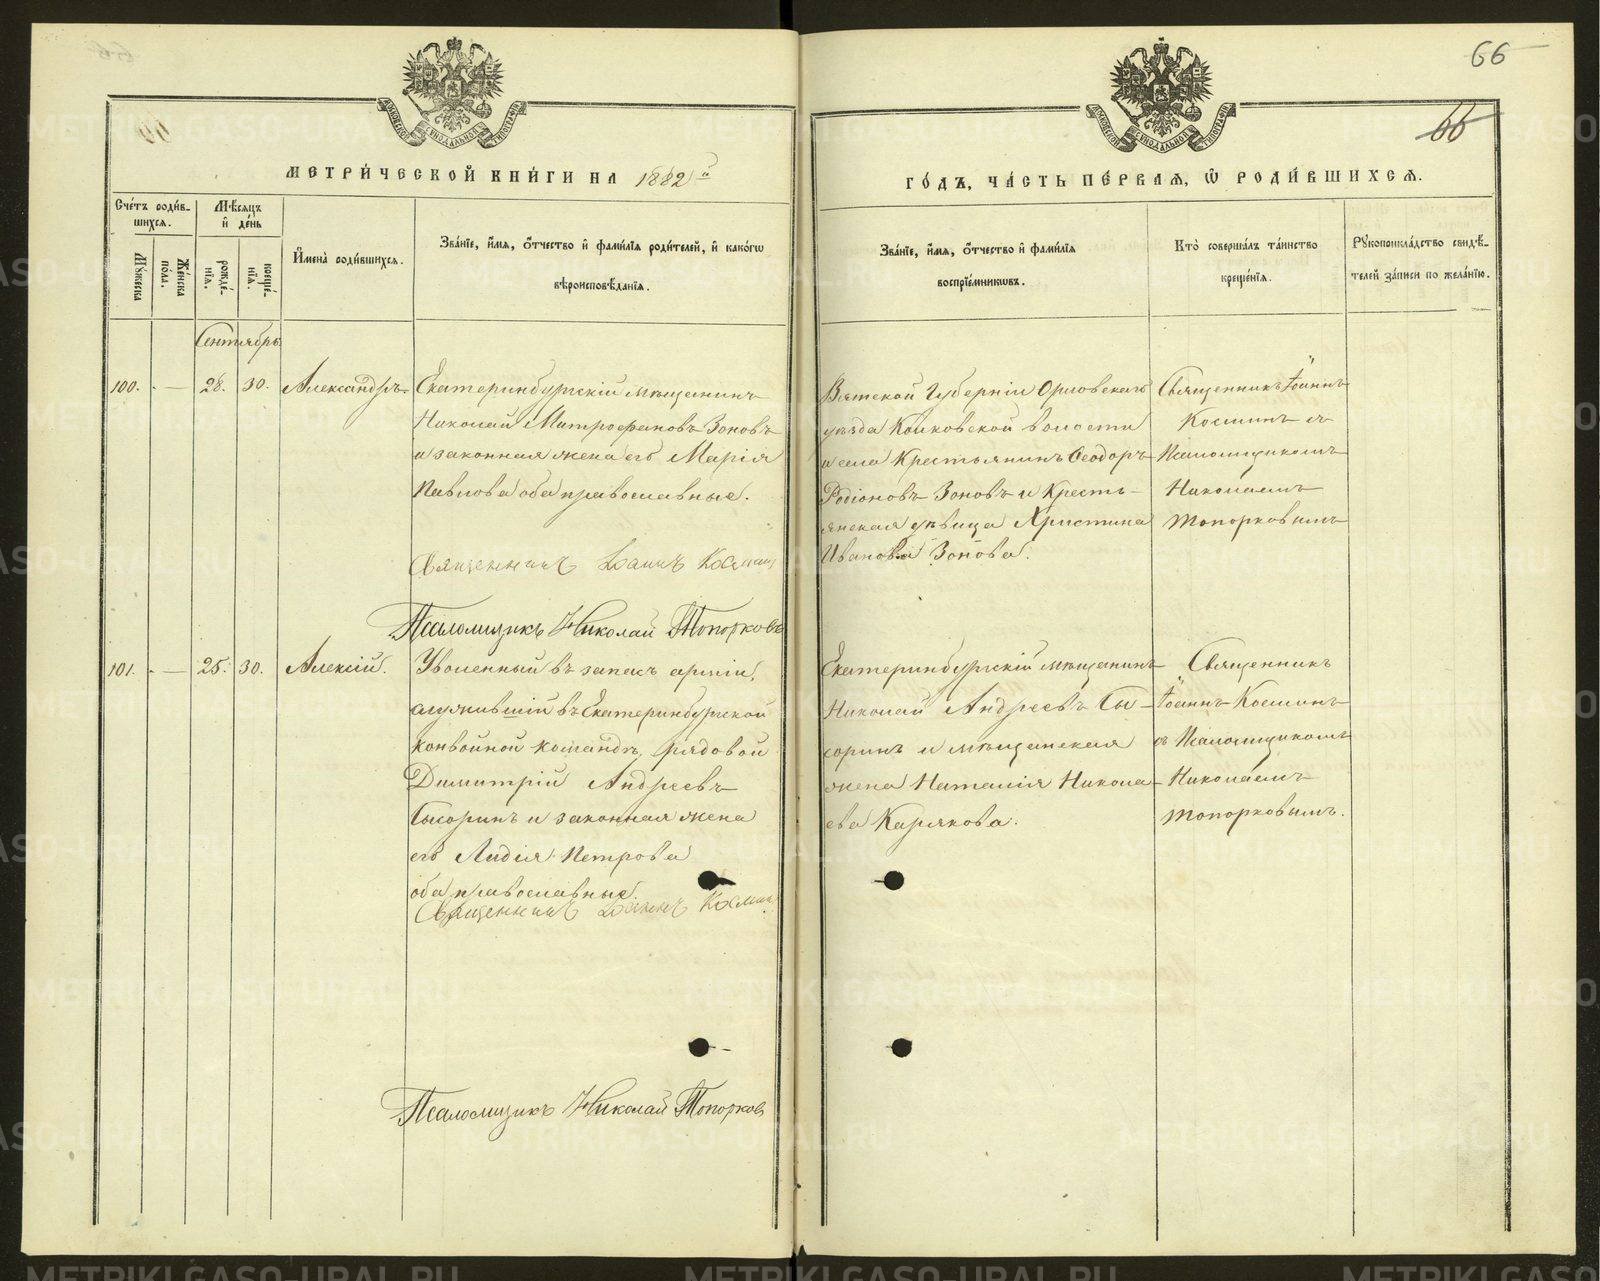 66
66
МОСКОВСКОЙ СѴНОДАЛЬНОЙ ТИПОГРАФІИ
МОСКОВСКОЙ СѴНОДАЛЬНОЙ ТИПОГРАФІИ
МЕТРИ́ЧЕСКОЙ КНИ́ГИ НА 1882й
ГО́ДЪ, ЧА́СТЬ ПЕ́РВАѦ, Ѡ РОДИ́ВШИХСѦ.
Сче́тъ роди́в-
шихсѧ.
Мѣ́сѧцъ
и҆ де́нь
Мꙋ́жеска
Же́нска
по́ла.
рожде́-
нїѧ.
креще́-
нїѧ.
И҆мена̀ роди́вшихсѧ.
Зва́нїе, и҆́мѧ, ѻ҆́тчество и҆ фами́лїѧ роди́телей, и҆ како́гѡ
вѣроисповѣ́данїѧ.
Зва́нїе, и҆́мѧ, ѻ҆́тчество и҆ фами́лїѧ
воспрїе́мникѡвъ.
Кто̀ соверша́лъ та́инство
креще́нїѧ.
Рꙋкоприкла́дство свидѣ́-
телей за́писи по жела́нїю.
Сентябрь
100. - — 28. 30. Александръ
Екатеринбургскій мѣщанинъ
Николай Митрофановъ Зоновъ
и законная жена его Марія
Павлова оба православные.
Священникъ Іоаннъ Косминъ
Псаломщикъ Николай Топорковъ
Вятской Губерніи Орловскаго
уѣзда Койковской волости
и села Крестьянинъ Ѳеодоръ
Родіоновъ Зоновъ и Кресть-
янская дѣвица Христина
Иванова Зонова.
Священникъ Іоаннъ
Косминъ съ
Псаломщикомъ
Николаемъ
Топорковымъ
101. - — 25. 30. Алексій.
Уволенный въ запасъ арміи,
служившій въ Екатеринбургской
конвойной командѣ, рядовой
Димитрій Андреевъ
Сысоринъ и законная жена
его Лидія Петрова
оба православные.
Священникъ Іоаннъ Косминъ
Псаломщикъ Николай Топорковъ
Екатеринбургскій мѣщанинъ
Николай Андреевъ Сы-
соринъ и мѣщанская
жена Наталія Никола-
ева Карякова.
Священникъ
Іоаннъ Косминъ
съ Псаломщикомъ
Николаемъ
Топорковымъ.
METRIKI.GASO-URAL.RU